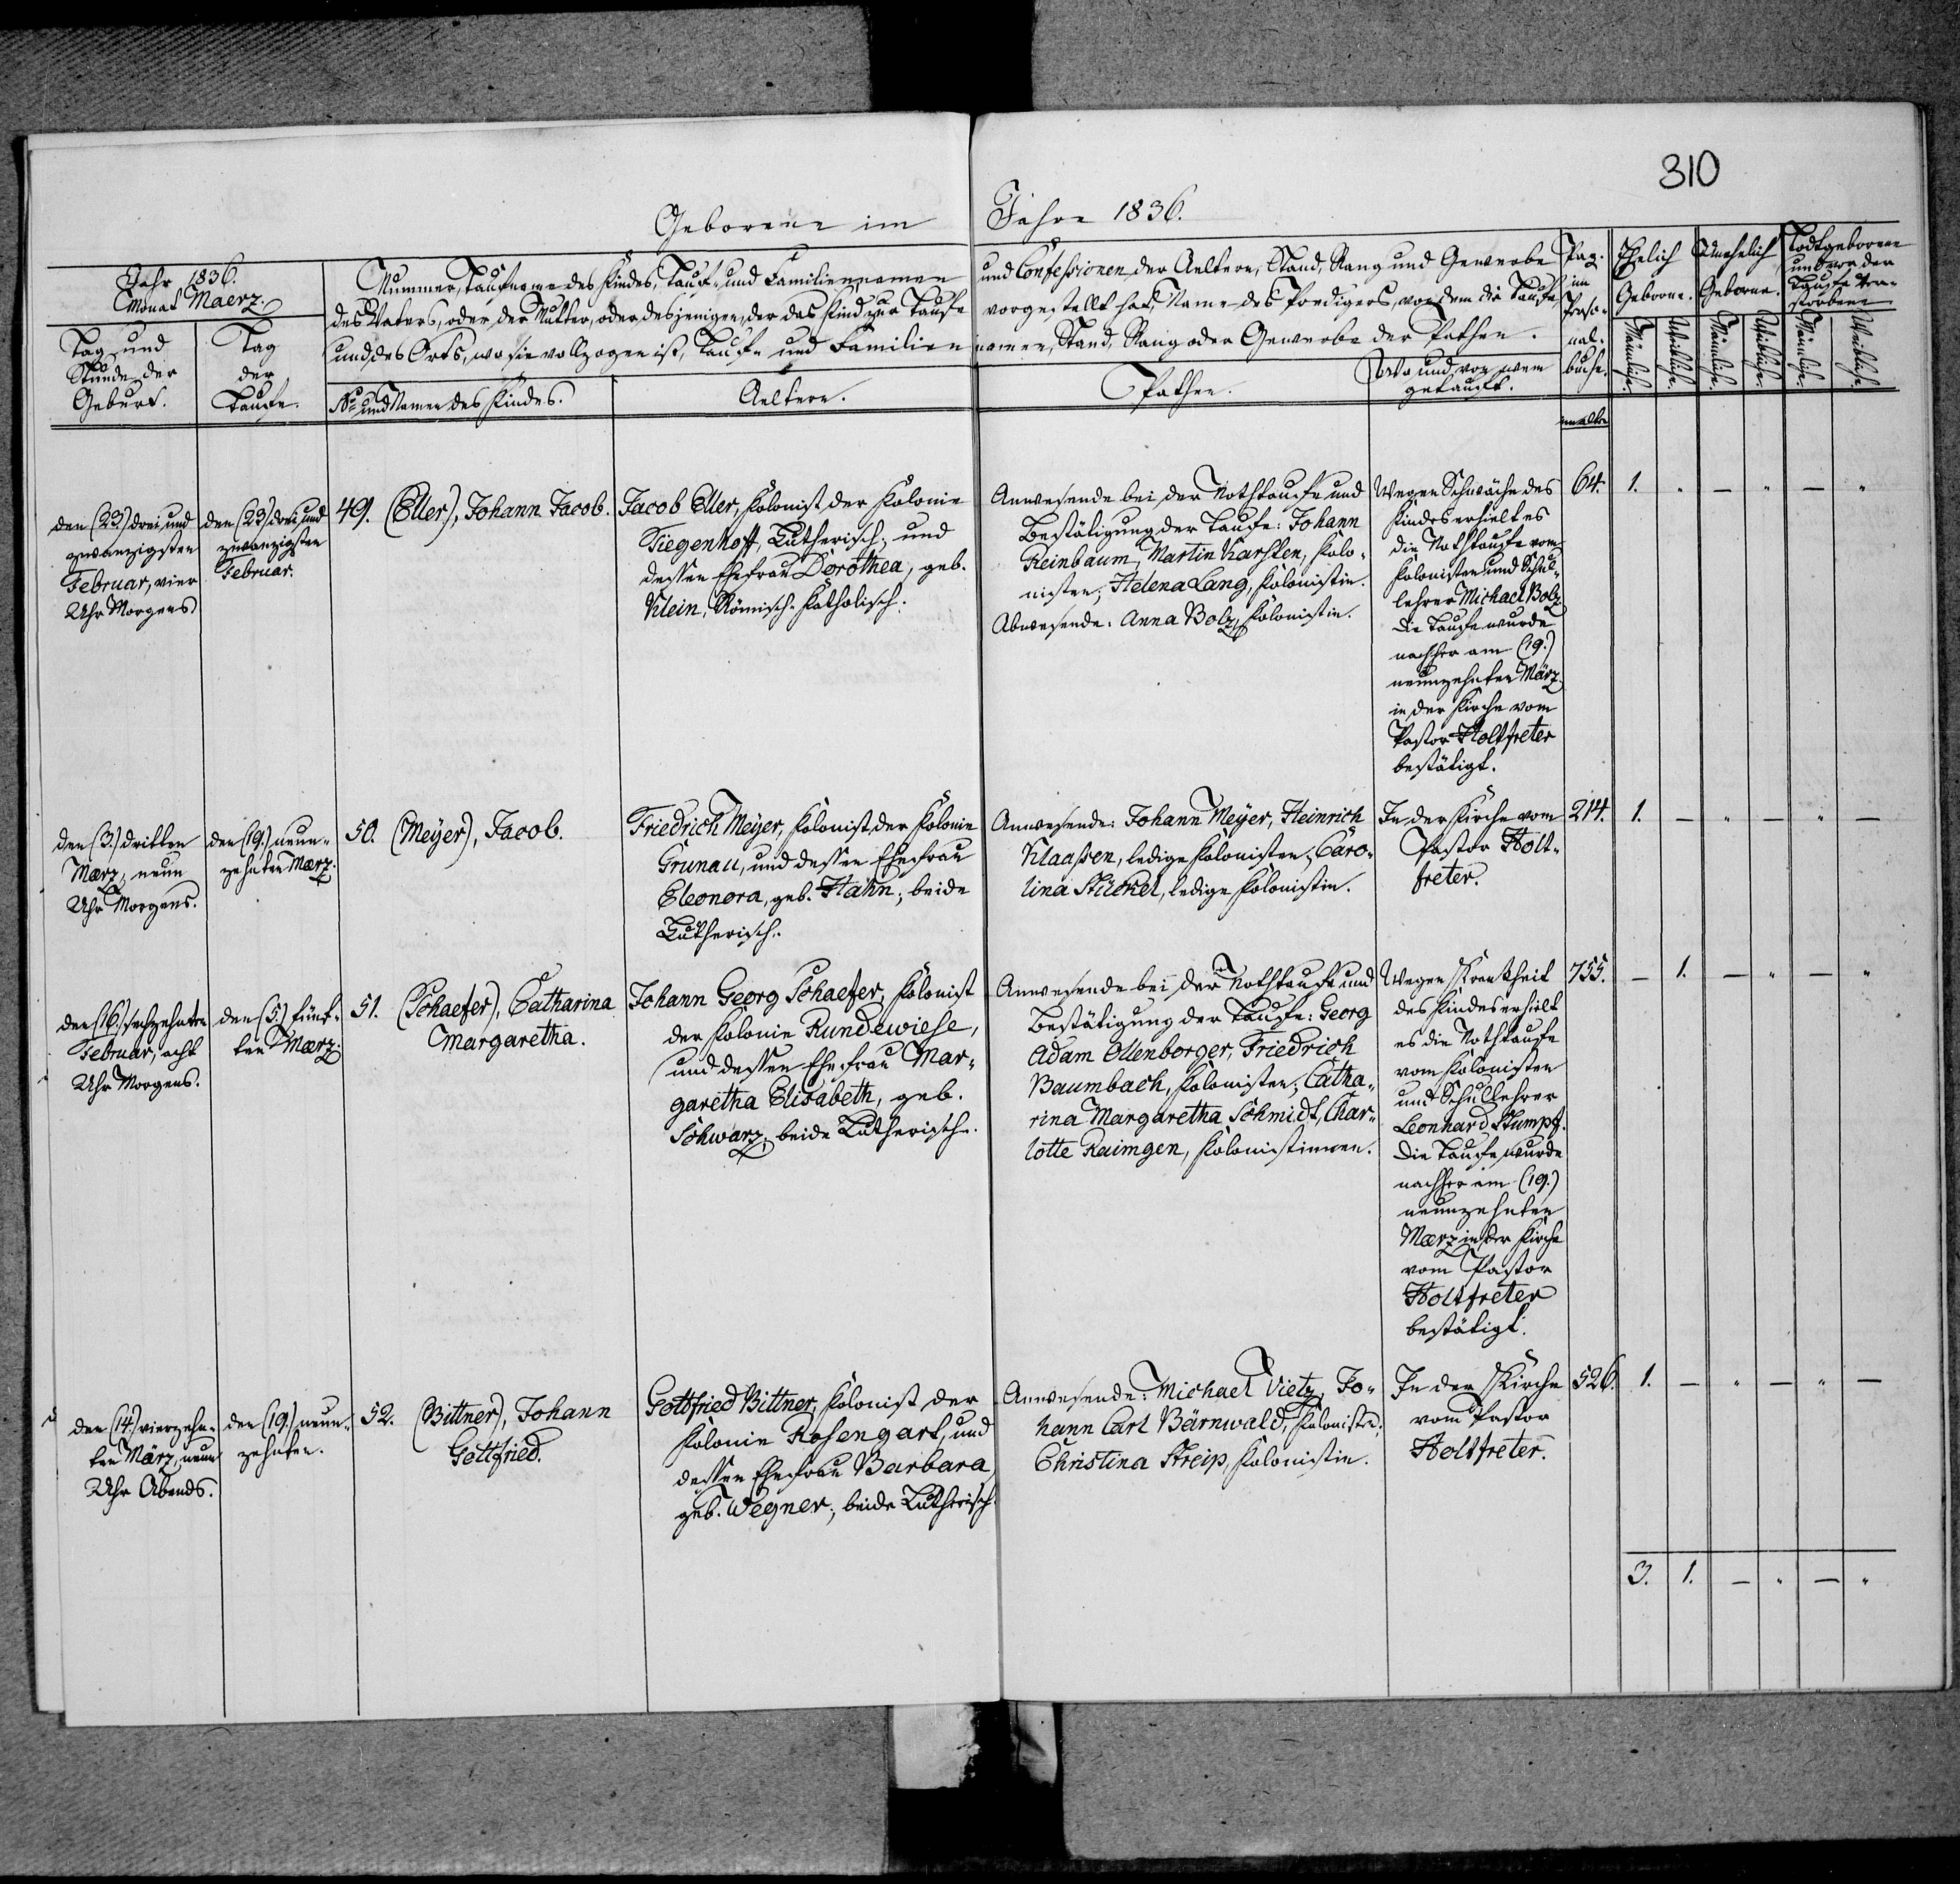 310
Geborene im Jahre 1836.
Jahr 1836.
Monat Maerz.
Tag und
Stunde der
Geburt.
Tag
der
Taufe.
Nummer, Taufname des Kindes, Tauf- und Familiennamen
des Vaters, oder der Mutter, oder desjenigen, der das Kind zur Taufe
und des Orts, wo sie vollzogen ist, Tauf- und Familien
No und Namen des Kindes.
Aeltern.
und Confessionen der Aeltern, Stand, Rang und Gewerbe
vorgestellt hat, Name des Predigers, von dem die Taufe
namen, Stand, Rang oder Gewerbe der Pathen.
Pathen.
Wo und von wem
getauft.
Pag.
im
Perso-
nal-
buche.
Ehelich
Geborne.
Unehelich
Geborne.
Todtgeborene
und vor der
Taufe Ver-
storbene
Männliche.
Weibliche.
Männliche.
Weibliche.
Männliche.
Weibliche.
den (23.) drei und
zwanzigsten
Februar, vier
Uhr Morgens
den (23) drei und
zwanzigsten
Februar.
49. (Eller), Johann Jacob.
Jacob Eller, Kolonist der Kolonie
Tiegenhoff, Lutherisch, und
dessen Ehefrau Dorothea, geb.
Klein, Römisch-Katholisch.
Anwesende bei der Nothtaufe und
Bestätigung der Taufe: Johann
Reinbaum, Martin Karsten, Kolo-
nisten; Helena Lang, Kolonistin.
Abwesende: Anna Bolz, Kolonistin.
Wegen Schwäche des
Kindes erhielt es
die Nothtaufe vom
Kolonisten und Schul-
lehrer Michael Bolz
Die Taufe wurde
nachher am (19.)
neunzehnten März
in der Kirche vom
Pastor Holtfreter
bestätigt.
64. 1. " — " — "
den (3.) dritten
Maerz, neun
Uhr Morgens.
den (19.) neun-
zehnten Maerz.
50. (Meyer), Jacob.
Friedrich Meyer, Kolonist der Kolonie
Grunau, und dessen Ehefrau
Eleonora, geb. Hahn; beide
Lutherisch.
Anwesende: Johann Meyer, Heinrich
Klaassen, ledige Kolonisten; Caro-
lina Stückel, ledige Kolonistin.
In der Kirche vom
Pastor Holt-
freter.
214. 1. — " — " —
den (16) sechzehnten
Februar, acht
Uhr Morgens.
den (5.) fünf-
ten Maerz.
51. (Schaefer), Catharina
Margaretha.
Johann Georg Schaefer, Kolonist
der Kolonie Rundewiese,
und dessen Ehefrau Mar-
garetha Elisabeth, geb.
Schwarz; beide Lutherisch.
Anwesende bei der Nothtaufe und
Bestätigung der Taufe: Georg
Adam Ollenborger, Friedrich
Baumbach, Kolonisten; Catha-
rina Margaretha Schmidt, Char-
lotte Raimgen, Kolonistinnen.
Wegen Krankheit
des Kindes erhielt
es die Nothtaufe
vom Kolonisten
und Schullehrer
Leonhard Stumpf.
Die Taufe wurde
nachher am (19.)
neunzehnten
Maerz in der Kirche
vom Pastor
Holtfreter
bestätigt.
755. — 1. — " — "
den (14.) vierzehn-
ten März, neun
Uhr Abends.
den (19.) neun-
zehnten.
52. (Bittner), Johann
Gottfried.
Gottfried Bittner, Kolonist der
Kolonie Rosengart, und
dessen Ehefrau Barbara,
geb. Wegner; beide Lutherisch.
Anwesende: Michael Vietz, Jo-
hann Carl Bärnwald, Kolonisten;
Christina Streip, Kolonistin.
In der Kirche
vom Pastor
Holtfreter.
526. 1. — " — " —
3. 1. — " — "